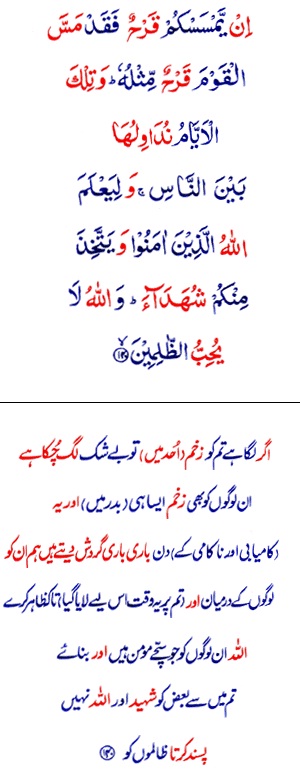 اِنْ يَّمْسَسْكُمْ قَرْحٌ فَقَدْ مَسَّ
الْقَوْمَ قَرْحٌ مِّثْلُهٗ ؕ وَتِلْكَ
الْاَيَّامُ نُدَاوِلُهَا
بَيْنَ النَّاسِ ۚ وَلِيَعْلَمَ
اللهُ الَّذِيْنَ اٰمَنُوْا وَيَتَّخِذَ
مِنْكُمْ شُهَدَآءَ ؕ وَاللهُ لَا
يُحِبُّ الظّٰلِمِيْنَ ﴿۱۴۰﴾
اگر لگا ہے تم کو زخم (اُحد میں) تو بے شک لگ چُکا ہے
ان لوگوں کو بھی زخم ایسا ہی (بدر میں) اور یہ
(کامیابی اور ناکامی کے) دن باری باری گردش دیتے ہیں ہم ان کو
لوگوں کے درمیان اور (تم پر یہ وقت اس لیے لایا گیا) تاکہ ظاہر کرے
اللہ ان لوگوں کو جو سچّے مومن ہیں اور بنائے
تم میں سے بعض کو شہید اور اللہ نہیں
پسند کرتا ظالموں کو ﴿۱۴۰﴾